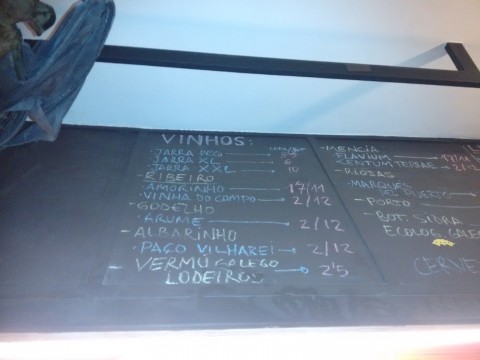 VINHOS:
·JARRA XL → 6
·JARRA XXL → 10
·RIBEIRO
·AMORINHO → 17/11
·VINHA DO CAMPO → 2/12
·GODELHO
·BRUME → 2/12
·ALBARINHO
·PAÇO VILHAREI → 2/12
·VERMÚ GALEGO
LODEIROS → 2'5
·MENCIA
FLAVIUM → 17/11
·RIOJAS
·MARQUES
·PORTO
·BOT. SIDRA
ECOLOG. GALEG
CERVE